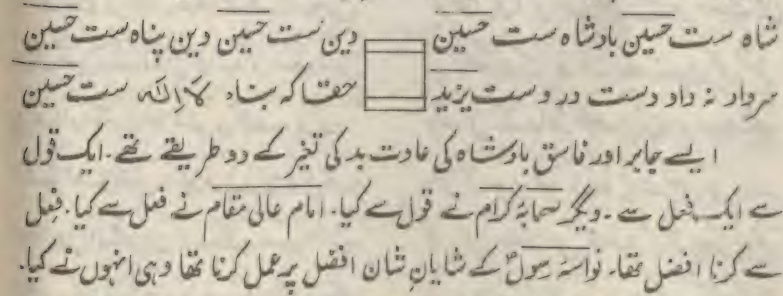 شاہ ست حسین بادشاہ ست حسین دین ست حسین دین پناہ ست حسین
سرداد نہ داد دست در دست یزید حقا کہ بناء لا الٰہ ست حسین
ایسے جابر اور فاسق بادشاہ کی عادت بد کی تغیر کے دو طریقے تھے۔ ایک قول
سے ایک فعل سے۔ دیگر سحابۂ کرام نے قول سے کیا۔ امام عالی مقام نے فعل سے کیا۔ فعل
سے کرنا افضل تھا۔ نواسۂ رسولؐ کے شایانِ شان افضل پر عمل کرنا تھا وہی انہوں نے کیا۔